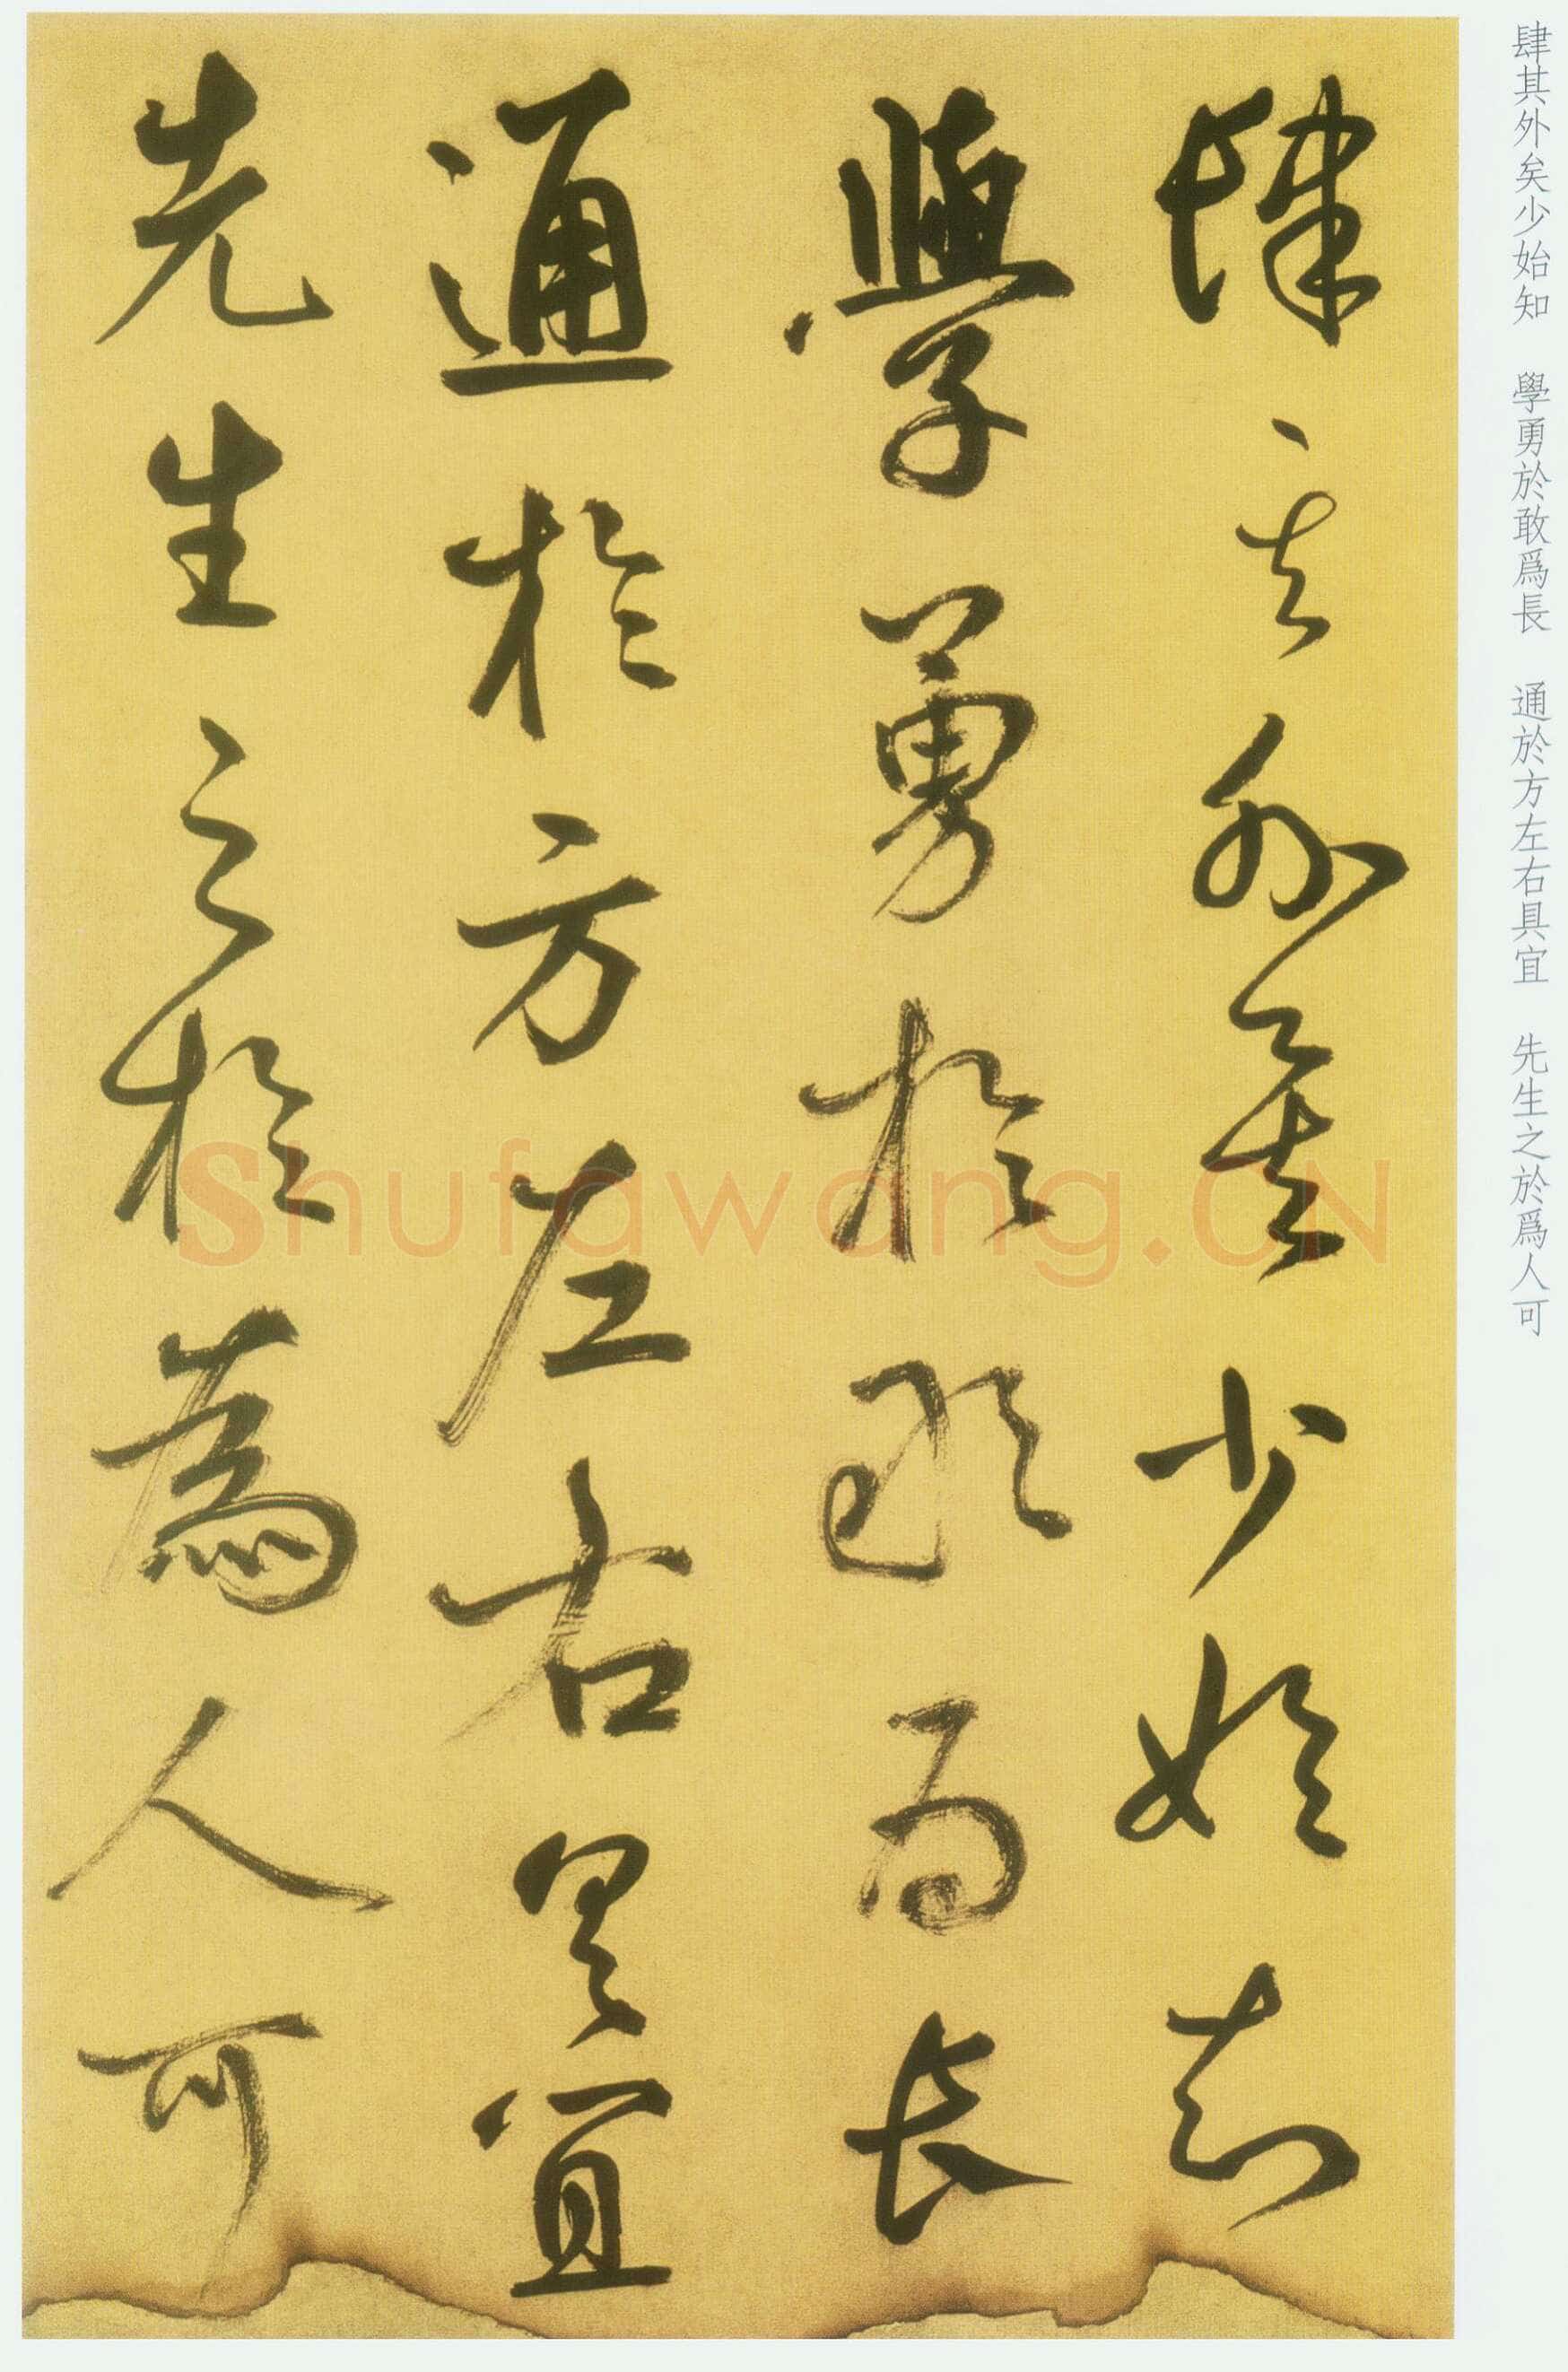 肆其外矣少始知
學勇於敢為長
通於方左右具宜
先生之於為人可
肆其外矣少始知　學勇於敢爲長　通於方左右具宜　先生之於爲人可
Shufawang.CN